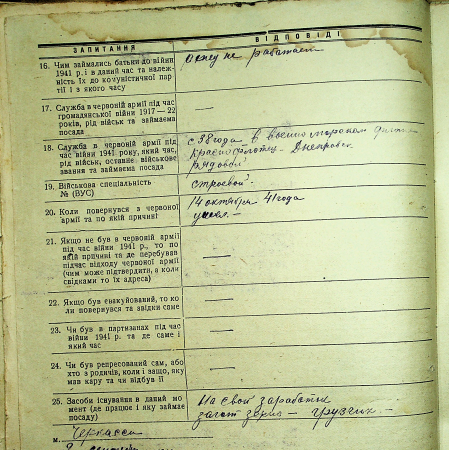 ЗАПИТАННЯ
ВІДПОВІДІ
16. Чим займались батьки до війни
1941 р. і в даний час та належ-
ність їх до комуністичної пар-
тії і з якого часу
не работает
17. Служба в червоній армії під час
громадянської війни 1917—22
років, рід військ та займаєма
посада
—
18. Служба в червоній армії під
час війни 1941 року, який час,
рід військ, останнє військове
звання та займаєма посада
с 38 года в военно морском
Краснофлотец - Днепровск.
рядовой
19. Військова спеціальність
№ (ВУС)
строевой.
20. Коли повернувся з червоної
армії та по якій причині
14 октября 41 года
21. Якщо не був в червоній армії
під час війни 1941 р., то по
якій причині та де перебував
підчас відходу червоної армії
(чим може підтвердити, а коли
свідками то їх адреса)
—
22. Якщо був евакуйований, то ко-
ли повернувся та звідки саме
—
23. Чи був в партизанах під час
війни 1941 р. та де саме і
який час
—
24. Чи був репресований сам, або
хто з родичів, коли і защо, яку
мав кару та чи відбув її
—
25. Засоби існування в даний мо-
мент (де працює і яку займає
посаду)
На свой заработок
загот зерно — грузчик. —
м. Черкассы